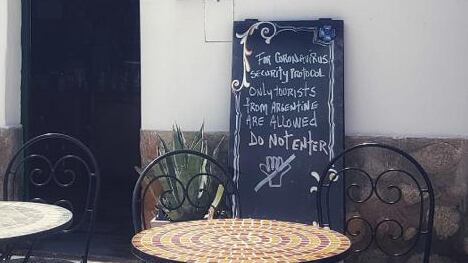 FOR CORONAVIRUS
SECURITY PROTOCOL
ONLY TOURISTS
FROM ARGENTINE
ARE ALLOWED
DO NOT ENTER